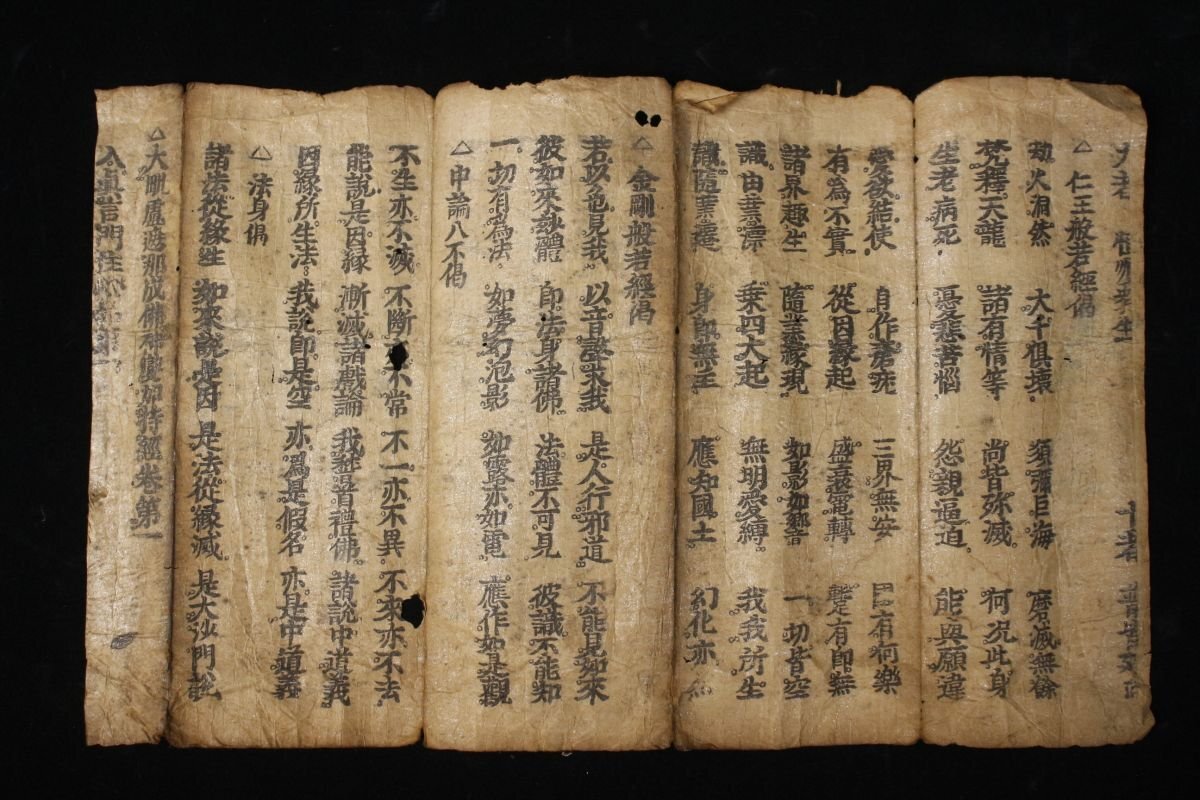 △ 仁王般若經偈
劫火洞然 大千俱壞 須彌巨海 磨滅無餘
梵釋天龍 諸有情等 尚皆殄滅 何況此身
生老病死 憂悲苦惱 怨親逼迫 能與願違
愛欲結使 自作瘡疣 三界無安 國有何樂
有為不實 從因緣起 盛衰電轉 蹔有即無
諸界趣生 隨業緣現 如影如響 一切皆空
識由業漂 乗四大起 無明愛縛 我我所生
識隨業遷 身即無主 應知國土 幻化亦
△ 金剛般若經偈
若以色見我 以音聲求我 是人行邪道 不能見如來
彼如來妙體 即法身諸佛 法體不可見 彼識不能知
一切有為法 如夢幻泡影 如露亦如電 應作如是觀
△ 中論八不偈
不生亦不滅 不斷 不常 不一亦不異 不來亦不去
能說是因緣 漸滅諸戲論 我稽首禮佛 諸說中道義
因緣所生法 我說即是空 亦為是假名 亦是中道義
△ 法身偈
諸法從緣生 如來說是因 是法從緣滅 是大沙門說
△ 大毗盧遮那成佛神變加持經卷第一
入真言門住心